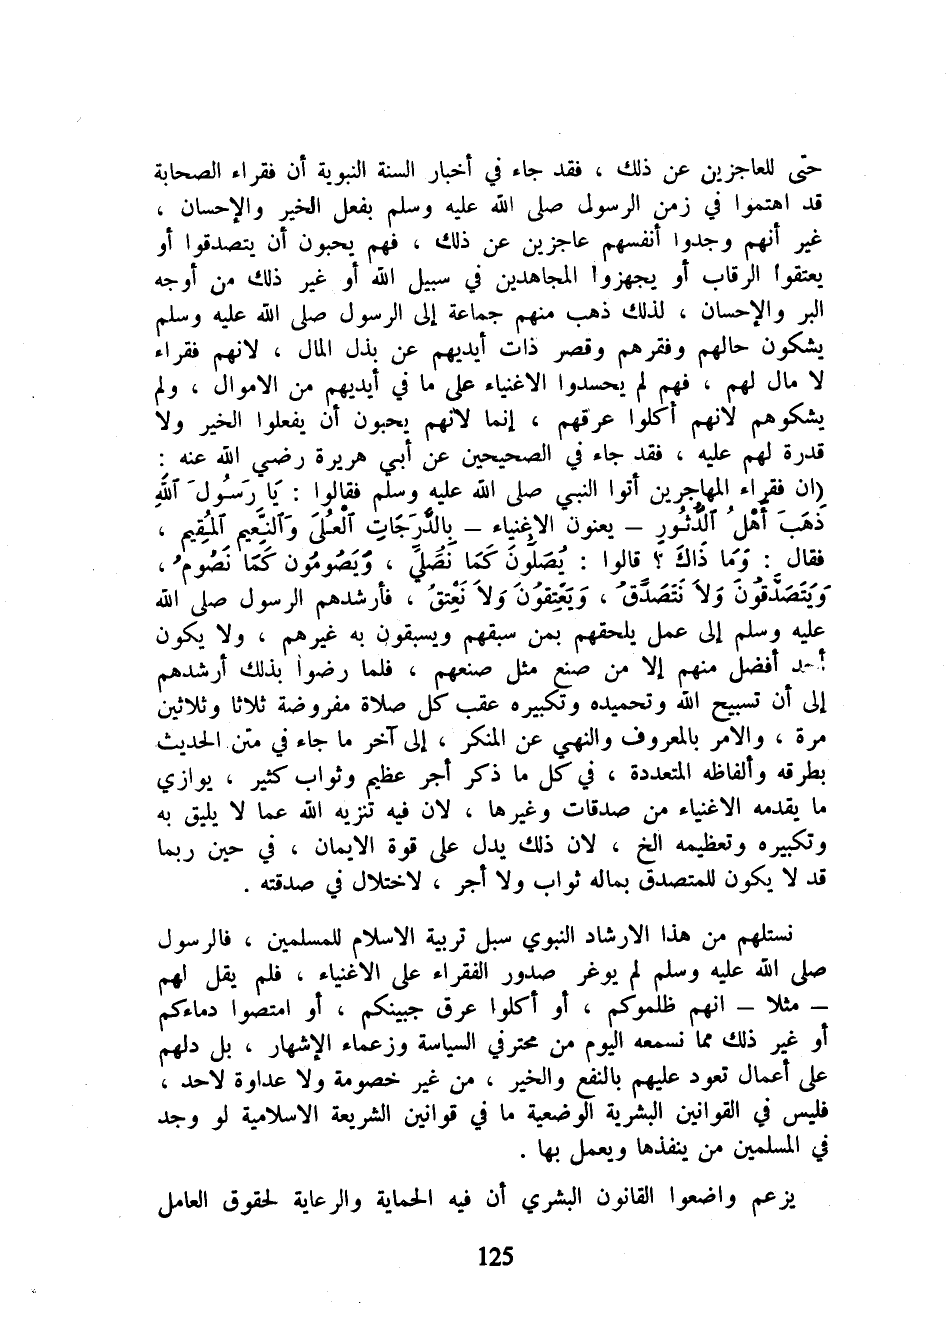 حتى للعاجزين عن ذلك ، فقد جاء في أخبار السنة النبوية أن فقراء الصحابة
قد اهتموا في زمن الرسول صلى الله عليه وسلم بفعل الخير والإحسان ،
غير أنهم وجدوا أنفسهم عاجزين عن ذلك ، فهم يحبون أن يتصدقوا أو
يعتقوا الرقاب أو يجهزوا المجاهدين في سبيل الله أو غير ذلك من أوجه
البر والإحسان ، لذلك ذهب منهم جماعة إلى الرسول صلى الله عليه وسلم
يشكون حالهم وفقرهم وقصر ذات أيديهم عن بذل المال ، لانهم فقراء
لا مال لهم ، فهم لم يحسدوا الاغنياء على ما في أيديهم من الاموال ، ولم
يشكوهم لانهم أكلوا عرقهم ، إنما لانهم يحبون أن يفعلوا الخير ولا
قدرة لهم عليه ، فقد جاء في الصحيحين عن أبي هريرة رضي الله عنه :
(ان فقراء المهاجرين أتوا النبي صلى الله عليه وسلم فقالوا : يَا رَسُولَ ٱللَّهِ
ذَهَبَ أَهْلُ ٱلدُّثُورِ – يعنون الاغنياء – بِالدَّرَجَاتِ ٱلْعُلَى وَٱلنَّعِيمِ ٱلمُقِيمِ ،
فقال : وَمَا ذَاكَ ؟ قالوا : يُصَلُّونَ كَمَا نُصَلِّي ، وَيَصُومُون كَمَا نَصُومُ ،
وَيَتَصَدَّقُونَ وَلاَ نَتَصَدَّقُ ، وَيَعْتِقُونَ وَلاَ نَعْتِقُ ، فأرشدهم الرسول صلى الله
عليه وسلم إلى عمل يلحقهم بمن سبقهم ويسبقون به غيرهم ، ولا يكون
أحد أفضل منهم إلا من صنع مثل صنعهم ، فلما رضوا بذلك أرشدهم
إلى أن تسبيح الله وتحميده وتكبيره عقب كل صلاة مفروضة ثلاثا وثلاثين
مرة ، والامر بالمعروف والنهي عن المنكر ، إلى آخر ما جاء في متن الحديث
بطرقه وألفاظه المتعددة ، في كل ما ذكر أجر عظيم وثواب كثير ، يوازي
ما يقدمه الاغنياء من صدقات وغيرها ، لان فيه تنزيه الله عما لا يليق به
وتكبيره وتعظيمه الخ ، لان ذلك يدل على قوة الايمان ، في حين ربما
قد لا يكون للمتصدق بماله ثواب ولا أجر ، لاختلال في صدقته .
نستلهم من هذا الارشاد النبوي سبل تربية الاسلام للمسلمين ، فالرسول
صلى الله عليه وسلم لم يوغر صدور الفقراء على الاغنياء ، فلم يقل لهم
– مثلا – انهم ظلموكم ، أو أكلوا عرق جبينكم ، أو امتصوا دماءكم
أو غير ذلك مما نسمعه اليوم من محترفي السياسة وزعماء الإشهار ، بل دلهم
على أعمال تعود عليهم بالنفع والخير ، من غير خصومة ولا عداوة لاحد ،
فليس في القوانين البشرية الوضعية ما في قوانين الشريعة الاسلامية لو وجد
في المسلمين من ينفذها ويعمل بها .
يزعم واضعوا القانون البشري أن فيه الحماية والرعاية لحقوق العامل
125